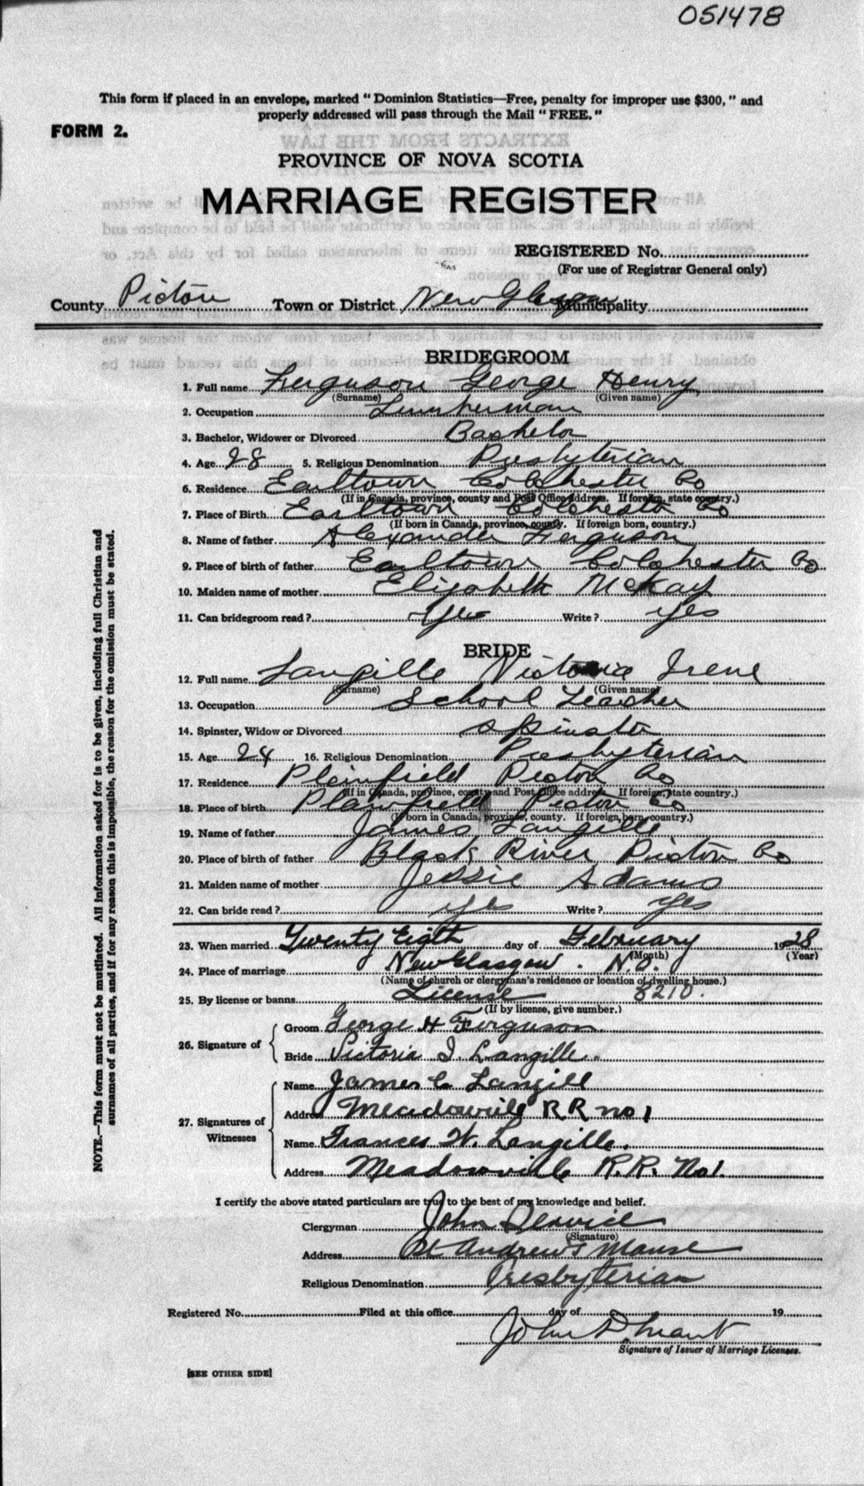 051478
This form if placed in an envelope, marked "Dominion Statistics—Free, penalty for improper use $300," and
properly addressed will pass through the Mail "FREE."
FORM 2.
PROVINCE OF NOVA SCOTIA
MARRIAGE REGISTER
REGISTERED No.
(For use of Registrar General only)
County Pictou Town or District New Glasgow Municipality
BRIDEGROOM
1. Full name Ferguson George Henry
(Surname) (Given name)
2. Occupation Lumberman
3. Bachelor, Widower or Divorced Bachelor
4. Age 28 5. Religious Denomination Presbyterian
6. Residence Earltown Colchester Co
(If in Canada, province, county and Post Office address. If foreign, state country.)
7. Place of Birth Earltown Colchester Co
(If born in Canada, province, county. If foreign born, country.)
8. Name of father Alexander Ferguson
9. Place of birth of father Earltown Colchester Co
10. Maiden name of mother Elizabeth McKay
11. Can bridegroom read? Yes Write? yes
BRIDE
12. Full name Langille Victoria Irene
(Surname) (Given name)
13. Occupation School Teacher
14. Spinster, Widow or Divorced Spinster
15. Age 24 16. Religious Denomination Presbyterian
17. Residence Plainfield Pictou Co
(If in Canada, province, county and Post Office address. If foreign, state country.)
18. Place of birth Plainfield Pictou Co
(If born in Canada, province, county. If foreign born, country.)
19. Name of father James Langille
20. Place of birth of father Black River Pictou Co
21. Maiden name of mother Jessie Adams
22. Can bride read? yes Write? yes
23. When married Twenty Eighth day of February 1928
(Month) (Year)
24. Place of marriage New Glasgow. N.S.
(Name of church or clergyman's residence or location of dwelling house.)
25. By license or banns License 8210.
(If by license, give number.)
26. Signature of
Groom George H Ferguson
Bride Victoria I. Langille.
27. Signatures of Witnesses
Name James C Langill
Address Meadowvill R R no 1
Name Frances W. Langille.
Address Meadowville R.R. No 1.
I certify the above stated particulars are true to the best of my knowledge and belief.
Clergyman John
(Signature)
Address St Andrew's Manse
Religious Denomination Presbyterian
Registered No. Filed at this office day of 19
John D.
Signature of Issuer of Marriage Licenses.
[SEE OTHER SIDE]
NOTE.—This form must not be mutilated. All information asked for is to be given, including full Christian and
surnames of all parties, and if for any reason this is impossible, the reason for the omission must be stated.